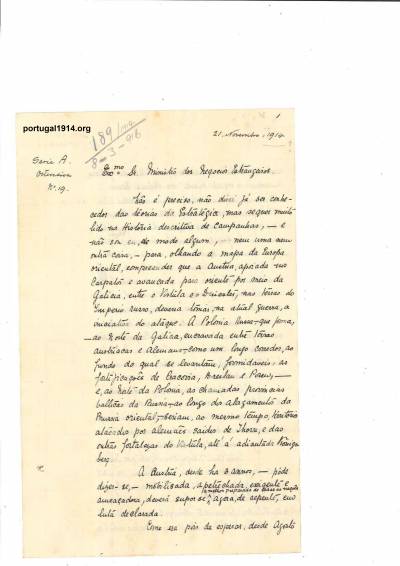 portugal1914.org
189/
8-3-916
1
21. Novembro, 1914.
Serie A.
Ostensivo
Nº. 19.
Exmo. Sr. Ministro dos Negocios Estrangeiros.
Não é preciso, não direi já ser conhe-
cedor das teorias da Estratégica, mas sequer muito
lido na História descritiva de Campanhas, — e
não sou eu, de modo algum, — nem uma nem
outra coisa, — para, olhando a mapa da Europa
oriental, compreender que a Austria, apoiada nos
Carpatos e avançada para oriente por meio da
Galicia, entre o Vistula e o Dniester, nas terras do
Imperio russo, deveria tomar, na atual guerra, a
iniciativa do ataque. A Polonia Russa — que forma,
— ao Norte da Galicia, encravada entre terras
austriacas e Alemans — como um longo corredor, ao
fundo do qual se levantam, formidaveis, as
fortificações de Cracovia, Breslau e Posen, —
e, ao Norte da Polonia, as chamadas provincias
balticas da Russia — ao longo do alargamento da
Prussia oriental — seriam, ao mesmo tempo, territorio
atacado por alemães saidos de Thorn, e das
outras fortalezas do Vistula, até á adiantada Königs-
berg.
A Austria, desde ha 3 annos, — póde
dizer-se, — mobilisada, apetrechada, exigente e
ameaçadora, deverá supor-se agora, de repente, em
luta declarada.
Esse era pois de esperar, desde Agosto